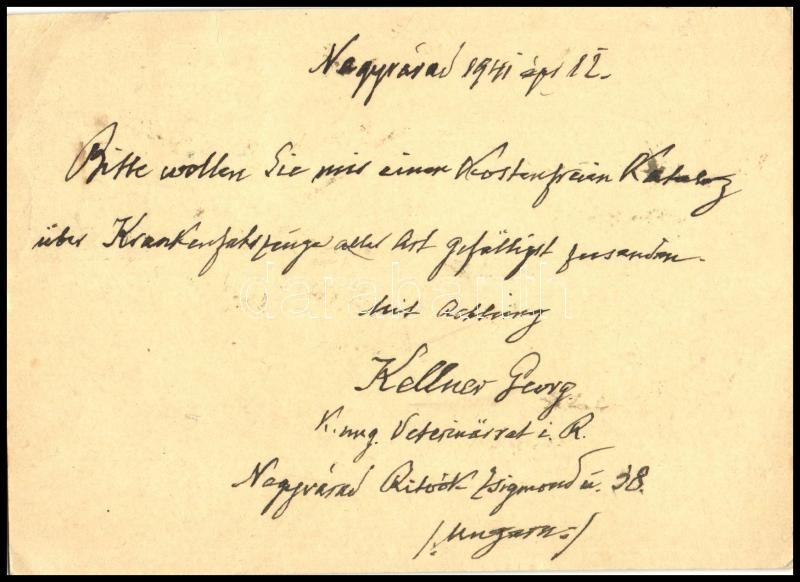 Nagyvárad 1941 ápr 12.
Bitte wollen Sie mir einen Kostenfreien Katalog
über Krankenfahrzeuge aller Art gefälligst zusenden.
darabanth
Mit Achtung
Kellner Georg
K. ung. Veterinärrat i. R.
Nagyvárad Ritoók Zsigmond u. 38.
(Ungarn)